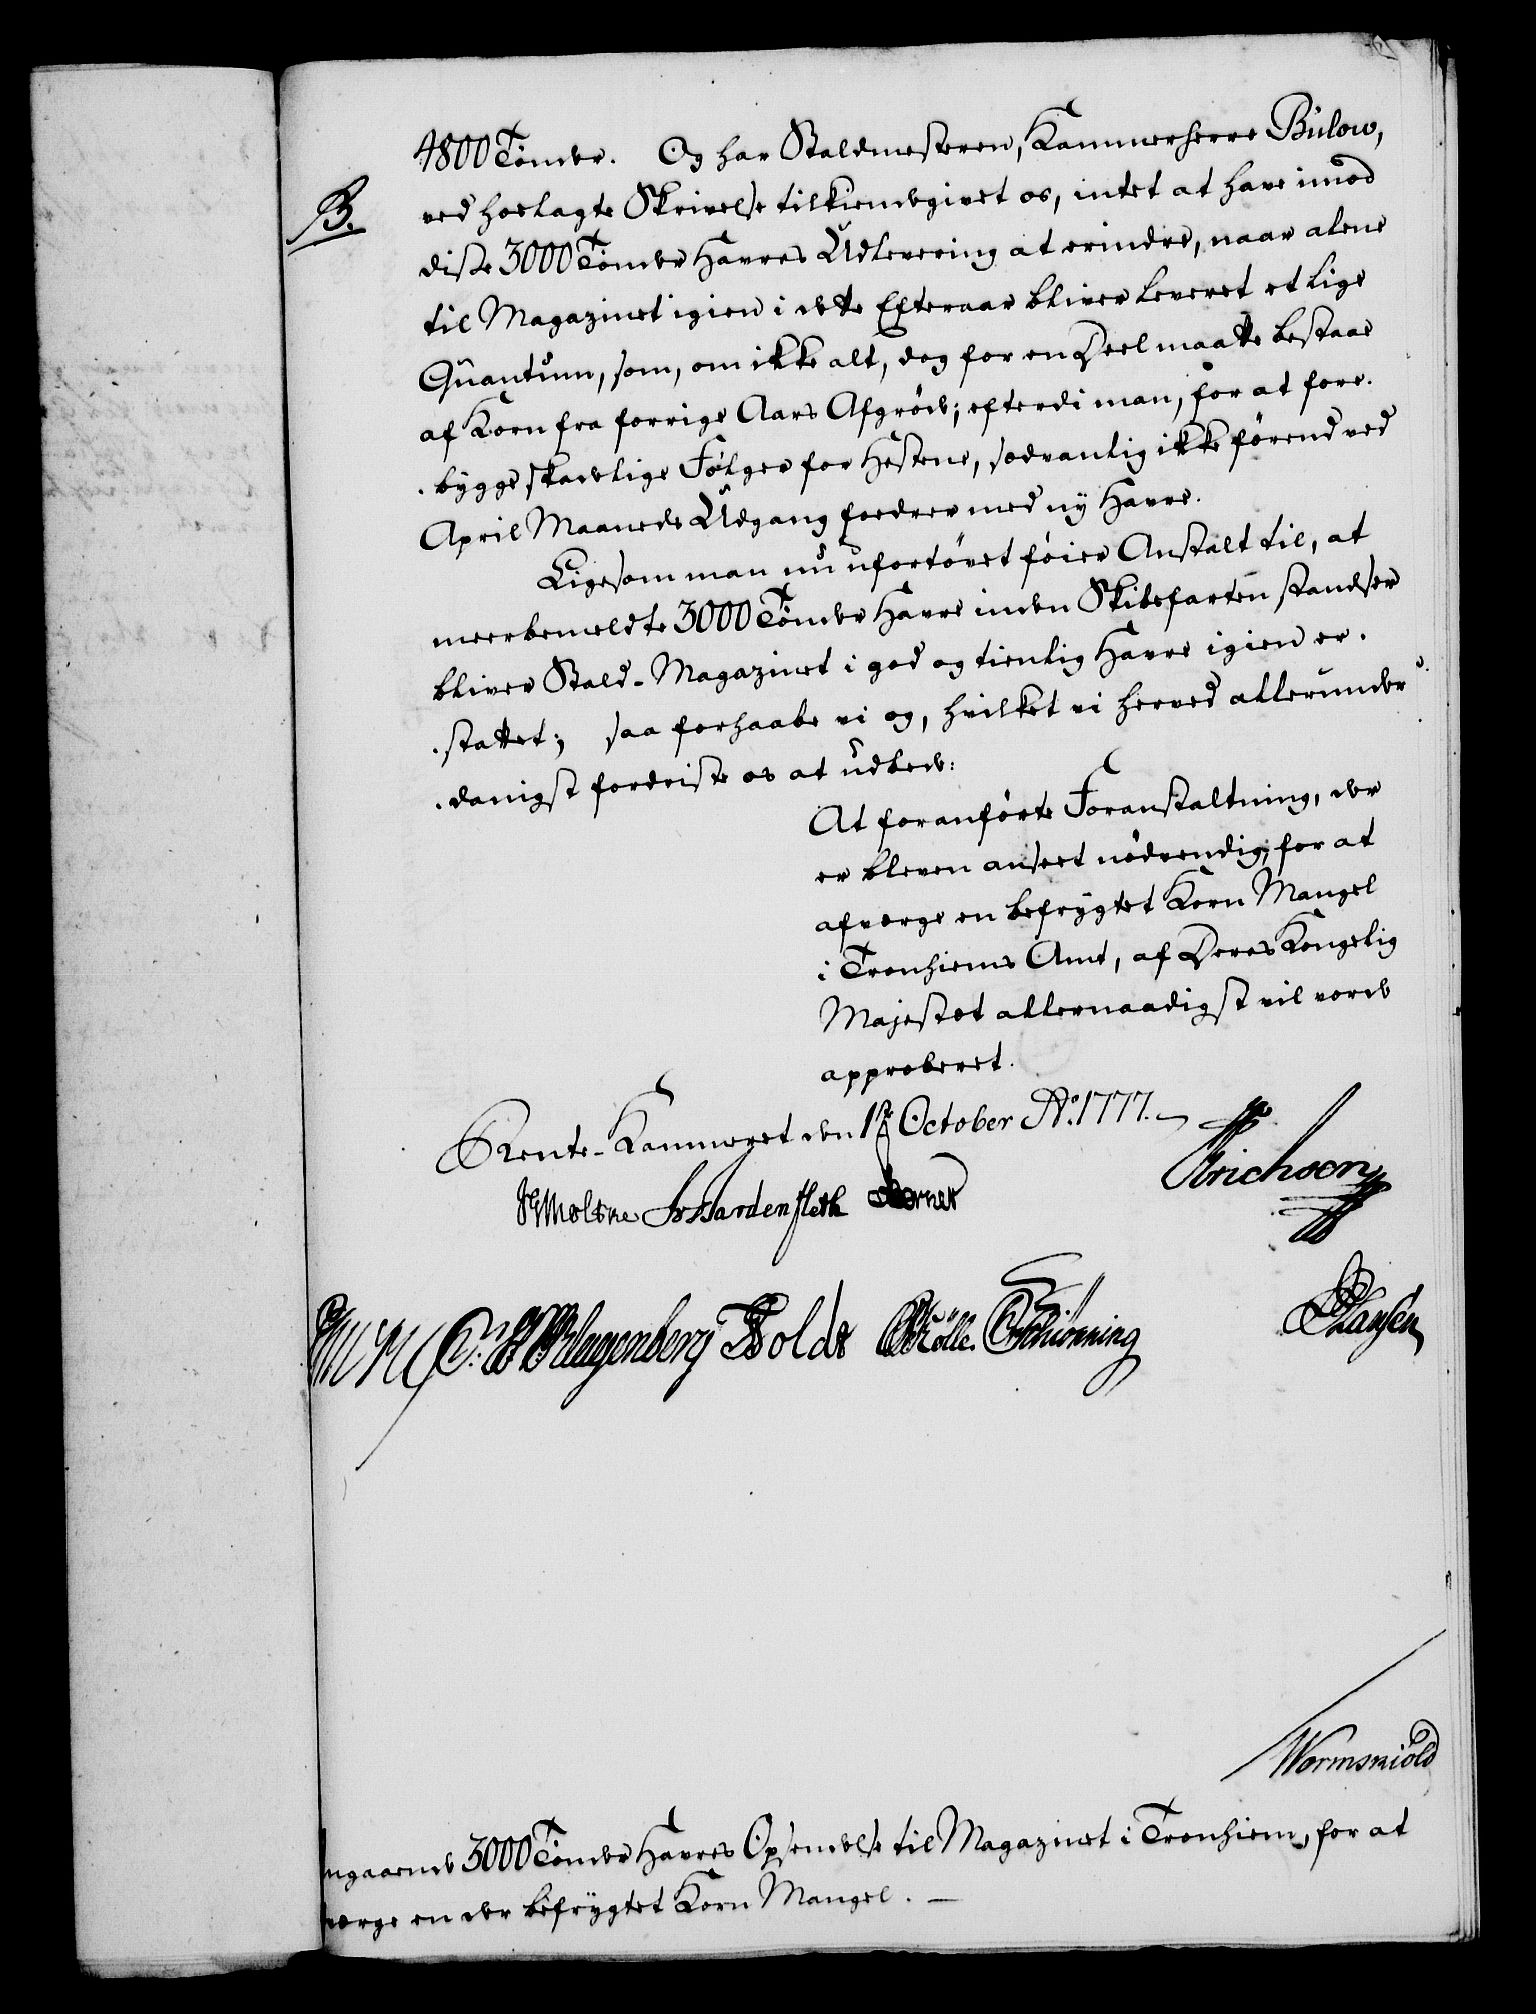 4800 Tønder. Og har Staldmesteren, Kammerherre Bülow,
B.
ved hoslagte Skrivelse tilkiendegivet os, intet at have imod
disse 3000 Tønder Havres Udlevering at erindre, naar alene
til Magazinet igien i dette Efteraar bliver leveret et lige
Quantum, som, om ikke alt, dog for en Deel maatte bestaae
af Korn fra forrige Aars Afgrøde; efterdi man, for at fore-
-bygge skadelige Følger for Hestene, sædvanlig ikke førend ved
April Maaneds Udgang foedrer med ny Havre.
Ligesom man nu ufortøvet føier Anstalt til, at
meerbemeldte 3000 Tønder Havre inden Skibsfarten standser
bliver Stald-Magazinet i god og tienlig Havre igien er-
-stattet; saa forhaabe vi og, hvilket vi herved allerunder-
-danigst fordriste os at udbede:
At foranførte Foranstaltning, der
er bleven anseet nødvendig, for at
afværge en befrygtet Korn Mangel
i Tronhiems Amt, af Deres Kongelig
Majestæt allernaadigst vil vorde
approberet.
Rente-Kammeret den October Ao. 1777.
Moltke Hardenfleth Berner Erichsen
Klagenberg Holdt Mølle Schiønning Hansen
Wormskiold
angaaende 3000 Tønder Havres Opsendelse til Magazinet i Tronhiem, for at
værge en der befrygtet Korn Mangel. —